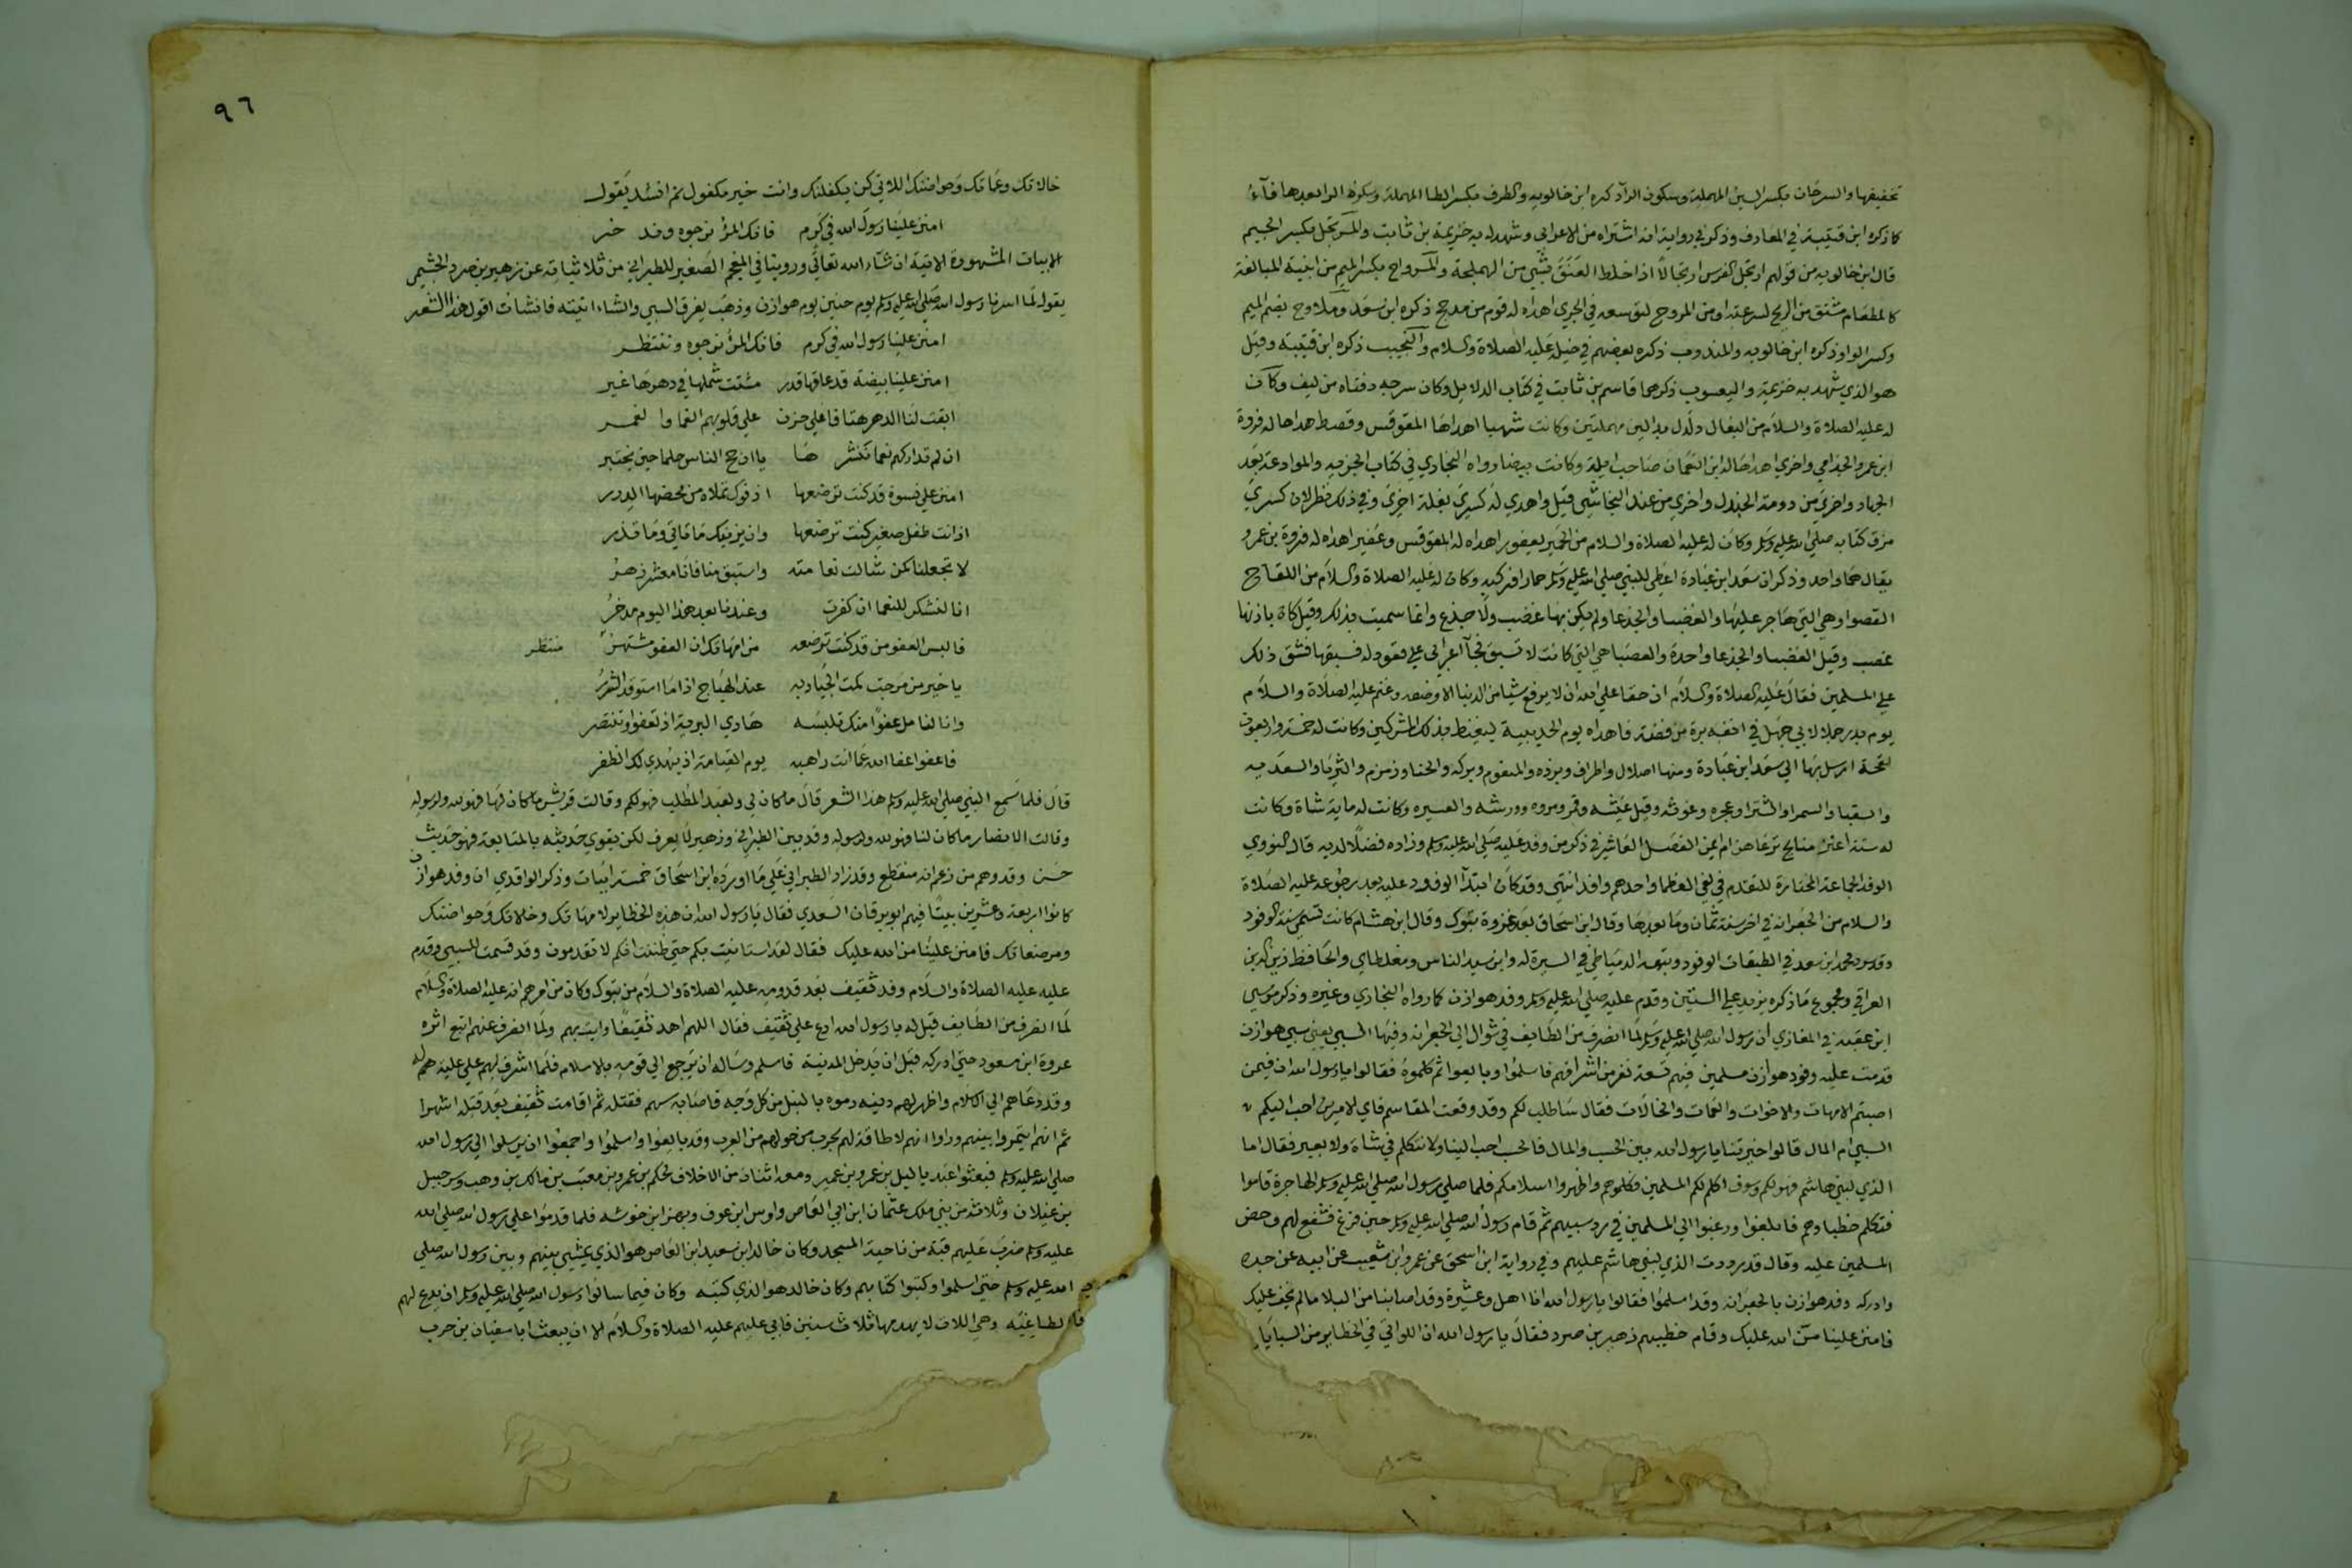 تخفيفها والسرحان بكسر السين المهملة وسكون الرآ ذكره ابن خالويه والطرف بكسر الطا المهملة وسكون الرا بعدها فآء
كا ذكره ابن قتيبة في المعارف وذكر في رواية انه اشتراه من الاعرابي وشهد له به خزيمة بن ثابت والمرتجل بكسر الجيم
قال ابن خالويه من قولهم ارتجل الفرس ارتجالا اذا خلط العنق بشي من الهملجة والمرواح بكسر الميم من ابنية المبالغة
كالمطعام مشتق من الريح لسرعته او من المروح لتوسعه في الجري اهداه له قوم من مدحج ذكره ابن سعد وملاوح بضم الميم
وكسر الواو ذكره ابن خالويه والمندوب ذكره بعضهم في خيله عليه الصلاة والسلام والنجيب ذكره ابن قتيبة وقيل
هو الذي شهد به خزيمة واليعسوب ذكرهما قاسم بن ثابت في كتاب الدلايل وكان سرجه دفتاه من ليف وكان
له عليه الصلاة والسلام من البغال دلدل بدالين مهملتين وكانت شهبا اهداها المقوقس وقصط هداها له فروة
ابن عمرو الجذامي واخري اهداها له ابن النعمان صاحب ايلة وكانت بيضا رواه البخاري في كتاب الجزيه والموادعة بعد
الجهاد واخري من دومة الجندل واخري من عند النجاشي قيل واهدي له كسري بغلة اخري وفي ذلك نظر لان كسري
مزق كتابه صلي الله عليه وسلم وكان له عليه الصلاة والسلام من الحمير يعفور اهداه له المقوقس وعفير اهداه له فروة بن عمرو
يقال هما واحد وذكر ان سعد ابن عبادة اعطي للنبي صلي الله عليه وسلم حمارا فركبه وكان له عليه الصلاة والسلام من اللقاح
القصوا وهي التي هاجر عليها والعضبا والجدعا ولم يكن بها عضب ولا جذع وانما سميت بذلك وقيل كان باذنها
عضب وقيل العضبا والجذعا واحدة والعضبا هي التي كانت لا تسبق فجآ اعرابي علي قعود له فسبقها فشق ذلك
علي المسلمين فقال عليه الصلاة والسلام ان حقا علي الله ان لا يرفع شيا من الدنيا الا وضعه وغنم عليه الصلاة والسلام
يوم بدر جملا لابي جهل في انفه برة من فضة فاهداه يوم الحديبية ليغيظ بذلك المشركين وكانت له خمسة واربعون
لقحة ارسل بها الي سعد ابن عبادة ومنها اصلال واطراف وبرده والمنغوم وبركه والحنا وزمزم والثريا والسعديه
والسقيا والسمرا والشقرا وعجره وعوثه وقيل غيثه وقمر ومروه وورشه والعسيره وكانت له ماية شاة وكانت
له ستة اعنز منايح ترعاهن ام ايمن الفصل العاشر في ذكر من وفد عليه صلي الله عليه وسلم وزاده فضلا لديه قال النووي
الوفد الجماعة المختارة للتقدم في لقي العظما واحدهم وافد انتهي وقد كان ابتدآ الوفود عليه بعد رجوعه عليه الصلاة
والسلام من الجعرانه في اخر سنة ثمان وما بعدها وقال ابن اسحاق بعد غزوة تبوك وقال ابن هشام كانت تسمي سنة الوفود
وقد سرد محمد ابن سعد في الطبقات الوفود وتبعه الدمياطي في السيرة له وابن سيد الناس ومغلطاي والحافظ زين الدين
العراقي ومجموع ما ذكره يزيد علي الستين وقدم عليه صلي الله عليه وسلم وفد هوازن كما رواه البخاري وغيره وذكر موسي
ابن عقبه في المغازي ان رسول الله صلي الله عليه وسلم لما انصرف من الطايف في شوال الي الجعرانه وفيها السبي يعني سبي هوازن
قدمت عليه وفود هوازن مسلمين فيهم تسعة نفر من اشرافهم فاسلموا وبايعوا ثم كلموه فقالوا يا رسول الله ان فيمن
اصبتم الامهات والاخوات والعمات والخالات فقال ساطلب لكم وقد وقعت المقاسم فاي الامرين احب اليكم
السبي ام المال قالوا خيرتنا يا رسول الله بين الحسب والمال فالحسب احب الينا ولا نتكلم في شاة ولا بعير فقال اما
الذي لبني هاشم فهو لكم وسوف اكلم لكم المسلمين فكلموهم واظهروا اسلامكم فلما صلي رسول الله صلي الله عليه وسلم الهاجرة قاموا
فتكلم خطباوهم فابلغوا ورغبوا الي المسلمين في رد سبيهم ثم قام رسول الله صلي الله عليه وسلم حين فرغ فشفع لهم وحض
المسلمين عليه وقال قد رددت الذي لبني هاشم عليهم وفي رواية ابن اسحق عن عمرو ابن شعيب عن ابيه عن جده
وادركه وفد هوازن بالجعرانه وقد اسلموا فقالوا يا رسول الله انا اهل وعشيرة وقد اصابنا من البلا ما لم يخف عليك
فامنن علينا من الله عليك وقام خطيبهم زهير بن صرد فقال يا رسول الله ان اللواتي في الحظاير من السبايا
٩٦
خالاتك وعماتك وحواضنك اللاتي كن يكفلنك وانت خير مكفول ثم انشد يقول
امنن علينا رسول الله في كرم فانك المرؤ نرجوه وند خر
الابيات المشهورة الاتية ان شاء الله تعالي وروينا في المعجم الصغير للطبراني من ثلاثياته عن زهير بن صرد الجشمي
يقول لما اسرنا رسول الله صلي الله عليه وسلم يوم حنين يوم هوازن وذهب يفرق السبي والشاء اتيته فانشات اقول هذا الشعر
امنن علينا رسول الله في كرم فانك المرؤ نرجوه وننتظر
امنن علينا بيضة قد عاقها قدر مشتت شملها في دهرها غير
ابقت لنا الدهر هتافا علي حزن علي قلوبهم الغما والغمر
ان لم تداركهم نعما تنشرها يا ارجح الناس حلما حين يختبر
امنن علي نسوة قد كنت ترضعها اذ فوك تملاه من محضها الدرر
اذ انت طفل صغير كنت ترضعها وان يزينك ما تاتي وما تذر
لا تجعلنا كمن شالت نعامته واستبق منا فانا معشر زهر
انا لنشكر للنعما ان كفرت وعندنا بعد هذا اليوم مدخر
فالبس العفو من قد كنت ترضعه من امهاتك ان العفو مشتهر منتظر
يا خير من مرحت كمت الجياد به عند الهياج اذا ما استوقد الشرر
وانا لنامل عفوا منك تلبسه هادي البرية اذ تعفو وتنتصر
فاعفو اعفا الله عما انت راهبه يوم القيامة اذ يهدي لك الظفر
قال فلما سمع النبي صلي الله عليه وسلم هذا الشعر قال ما كان لي ولعبد المطلب فهو لكم وقالت قريش ما كان لها فهو لله ولرسوله
وقالت الانصار ما كان لنا فهو لله ولرسوله وقد بين الطبراني وزهير لا يعرف لكن يقوي حديثه بالمتابعة فهو حديث
حسن وقد وهم من زعم انه منقطع وقد زاد الطبراني علي ما اورده ابن اسحاق خمسة ابيات وذكر الواقدي ان وفد هوازن
كانوا اربعة وعشرين بيتا فيهم ابو برقان السعدي فقال يا رسول الله ان هذه الحظاير لامهاتك وخالاتك وحواضنك
ومرضعاتك فامنن علينا من الله عليك فقال لقد استانيت بكم حتي ظننت انكم لا تقدمون وقد قسمت السبي وقدم
عليه عليه الصلاة والسلام وفد ثقيف بعد قدومه عليه الصلاة والسلام من تبوك وكان من امرهم انه عليه الصلاة والسلام
لما انصرف من الطايف قيل له يا رسول الله ادع علي ثقيف فقال اللهم اهد ثقيفا وايت بهم ولما انصرف عنهم اتبع اثره
عروة ابن مسعود حتي ادركه قبل ان يدخل المدينة فاسلم وساله ان يرجع الي قومه بالاسلام فلما اشرف لهم علي علية لهم
وقد دعاهم الي الاسلام واظهر لهم دينه رموه بالنبل من كل وجه فاصابه سهم فقتله ثم اقامت ثقيف بعد قتله اشهرا
ثم انهم ايتمروا بينهم وراوا انهم لا طاقة لهم بحرب من حولهم من العرب وقد بايعوا واسلموا واجمعوا ان يرسلوا الي رسول الله
صلي الله عليه وسلم فبعثوا عبد ياليل بن عمرو بن عمير ومعه اثنان من الاحلاف الحكم بن عمرو بن معتب بن مالك بن وهب وسرحبيل
بن غيلان وثلاثة من بني ملك عثمان ابن ابي العاص واوس ابن عوف وبهز ابن خوشه فلما قدموا علي رسول الله صلي الله
عليه وسلم ضرب عليهم قبة من ناحية المسجد وكان خالد ابن سعيد ابن العاص هو الذي يمشي بينهم وبين رسول الله صلي
الله عليه وسلم حتي اسلموا وكتبوا كتابهم وكان خالد هو الذي كتبه وكان فيما سالوا رسول الله صلي الله عليه وسلم ان يدع لهم
الطاغيه وهي اللات لا يهدمها ثلاث سنين فابي عليهم عليه الصلاة والسلام الا ان يبعث ابا سفيان بن حرب